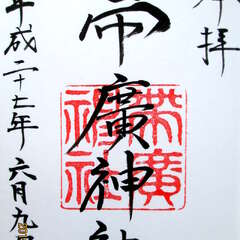 奉拝
帯廣神社
平成二十七年六月九日
帯廣神社